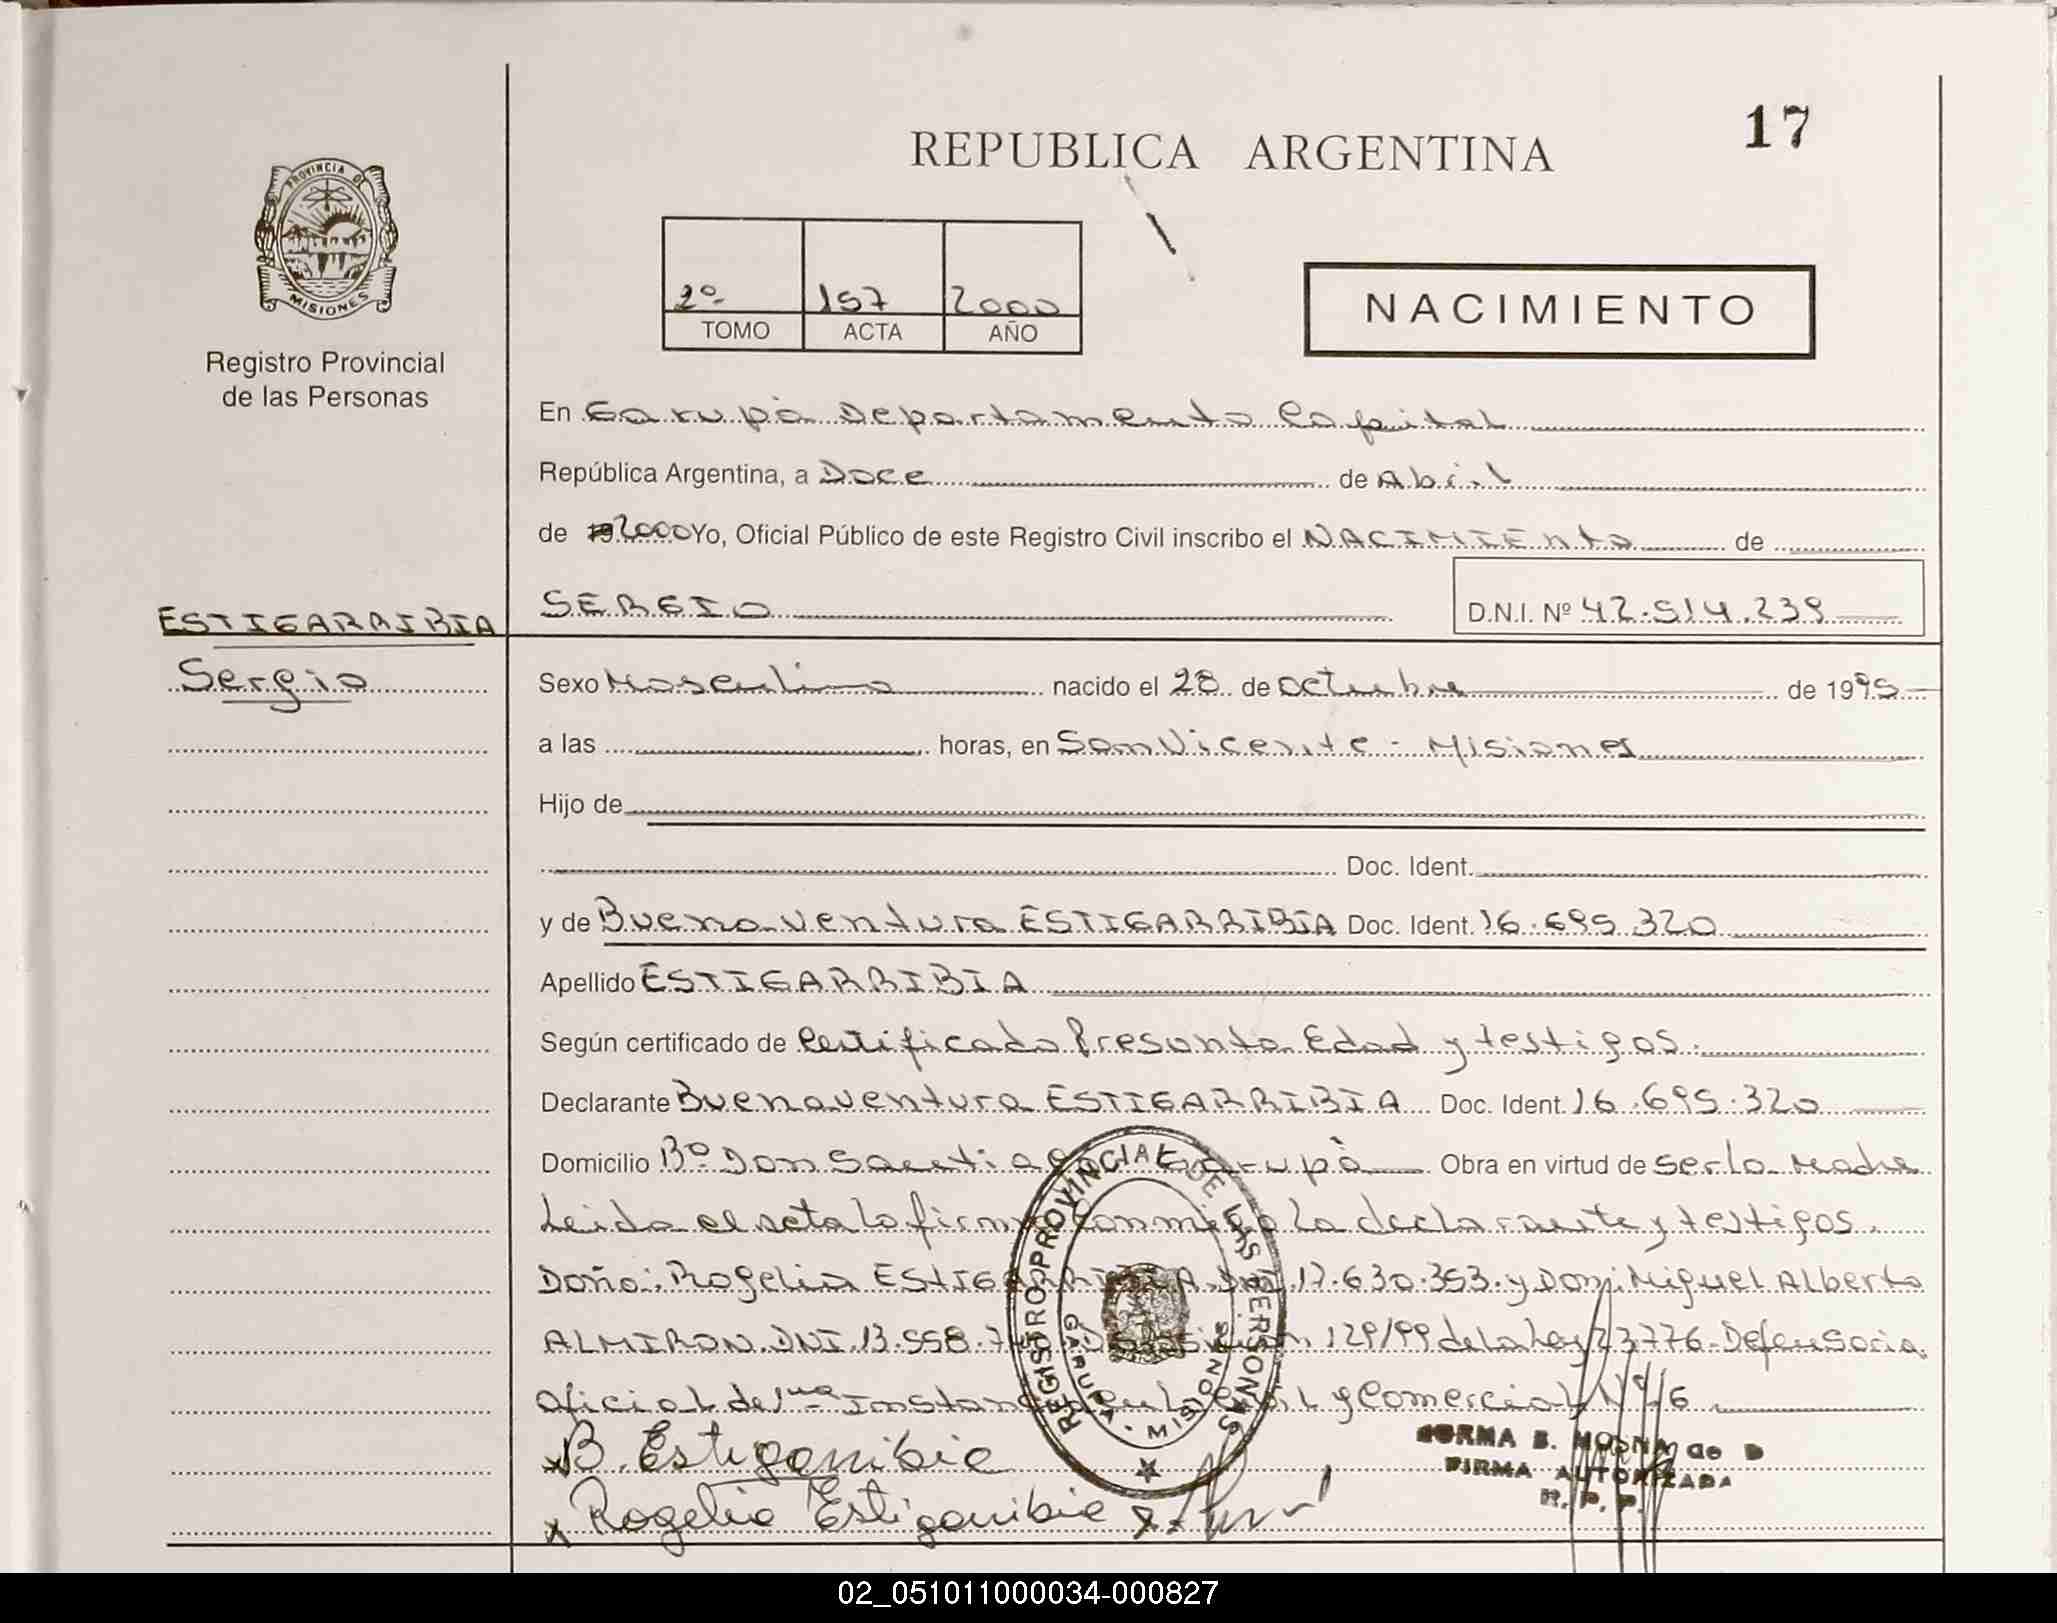 17
REPUBLICA ARGENTINA
PROVINCIA DE
MISIONES
Registro Provincial
de las Personas
2º 157 2000
TOMO ACTA AÑO
NACIMIENTO
En Garupà Departamento Capital
República Argentina, a Doce de Abril
de 2000 Yo, Oficial Público de este Registro Civil inscribo el NACIMIENto de
SERGIO D.N.I. Nº 42.514.239
ESTIGARRIBIA
Sergio
Sexo Masculino nacido el 28 de octubre de 1995
a las horas, en San Vicente - Misiones
Hijo de
Doc. Ident.
y de Buenaventura ESTIGARRIBIA Doc. Ident. 16.695.320
Apellido ESTIGARRIBIA
Según certificado de Certificado Presunta Edad y testigos.
Declarante Buenaventura ESTIGARRIBIA Doc. Ident. 16.695.320
Domicilio Bº Don Santiago Garupà Obra en virtud de ser la madre
Leida el acta la firman conmigo la declarante y testigos.
Doña: Rogelia ESTIGARRIBIA DNI 17.630.353. y Don: Miguel Alberto
ALMIRON DNI 13.558.7 Disposición 129/99 de la Ley 23776 - Defensoria
Oficial de 1ra Instancia en lo Civil y Comercial Nº 6
REGISTRO PROVINCIAL DE LAS PERSONAS
GARUPA - MISIONES
B. Estigarribia
Rogelia Estigarribia
NORMA B. de D
FIRMA AUTORIZADA
R. P. P.
02_051011000034-000827